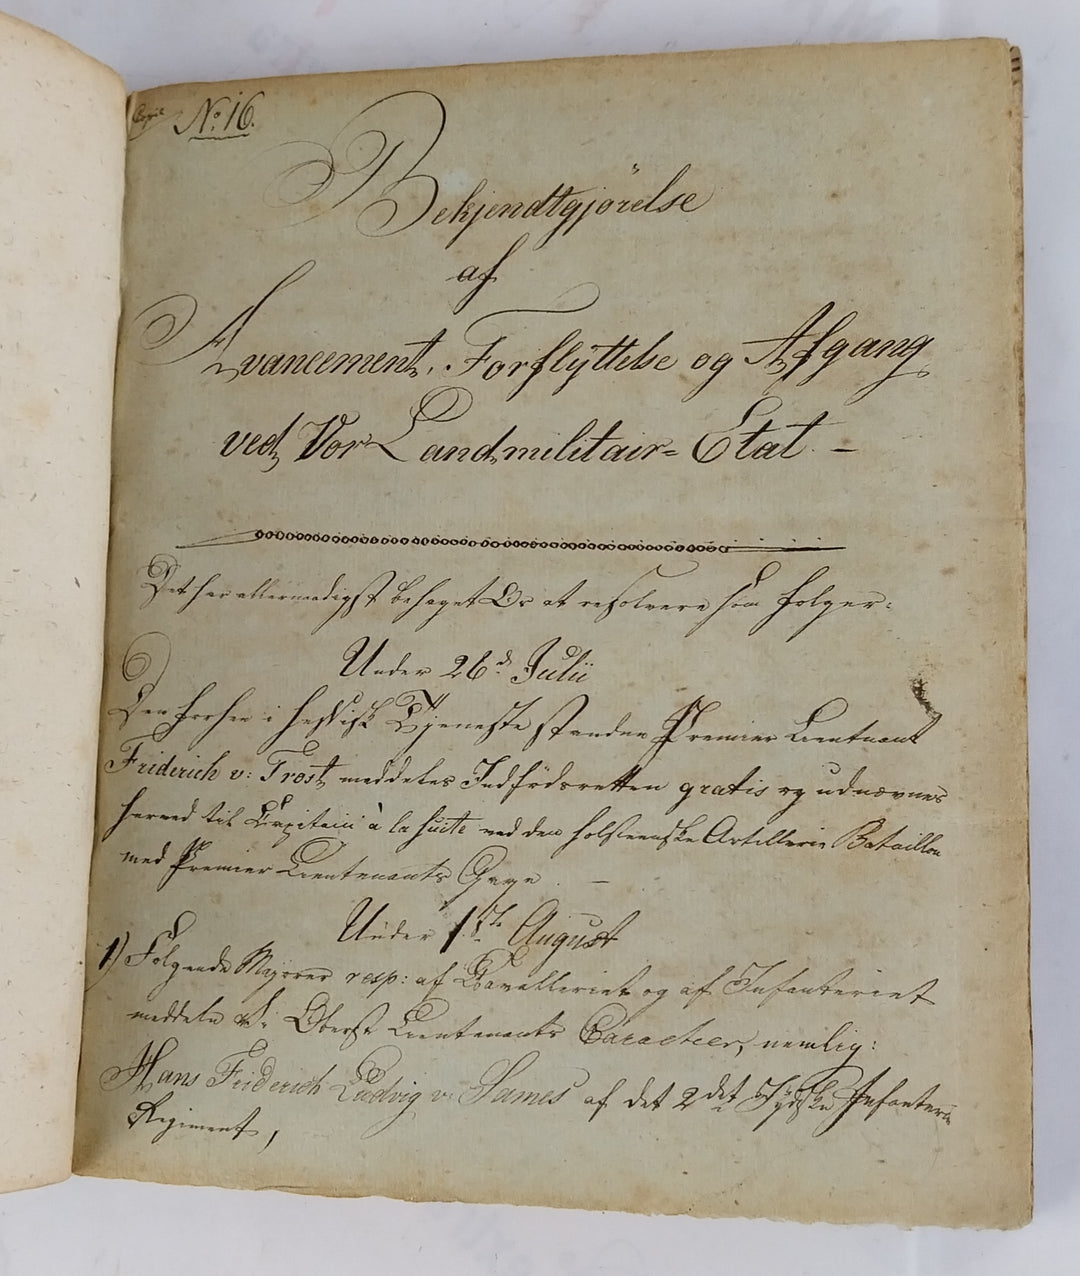 Copie No. 16.
Bekjendtgjörelse
af
Avancement, Forflÿttelse og Afgang
ved Vor Landmilitair= Etat. —
Det har allernaadigst behaget Os at resolvere som følger:
Under 26d. Julii
Den forhen i hessisk Tjeneste standne Premier Lieutnant
Friderich v: Trost meddeles Indfödsretten gratis og udnævnes
herved til Capitain à la Suite ved den holsteenske Artillerie Bataillon
med Premier Lieutenants Gage. —
Under 1ste August
1) Følgende Majorer resp: af Cavalleriet og af Infanteriet
meddele Vi Oberst Lieutenants Caracteer, nemlig:
Hans Friderich Ludvig v: Sames af det 2det Jÿdske Infanterie
Regiment,